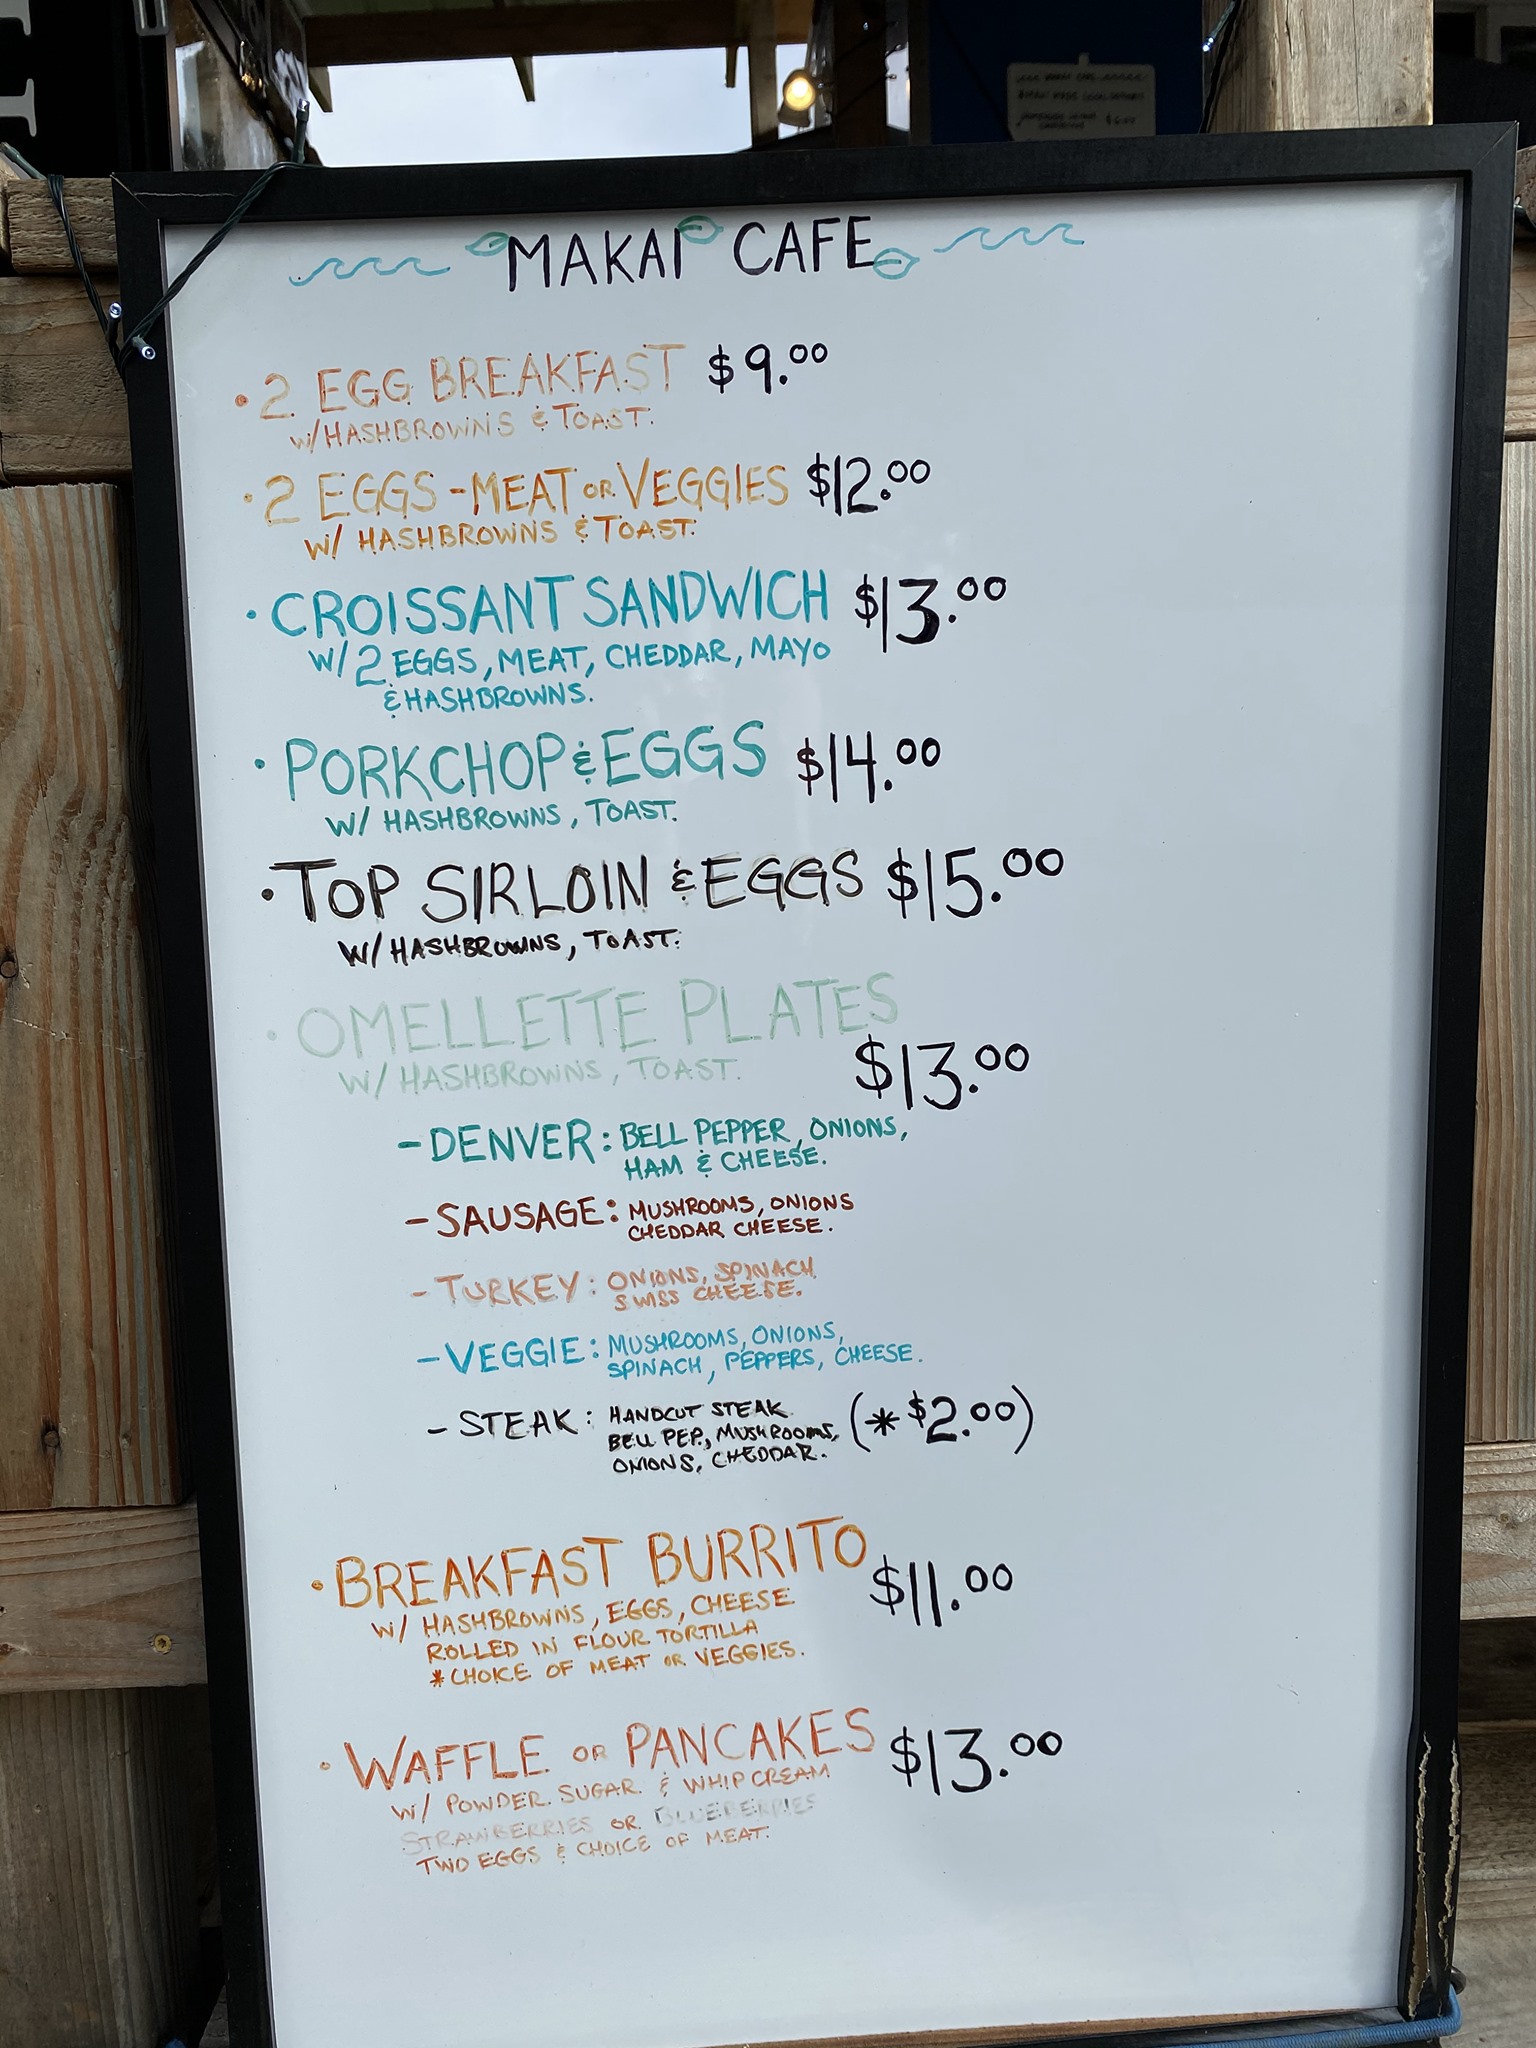 MAKAI CAFE
• 2 EGG BREAKFAST $9.00
W/HASHBROWNS & TOAST.
• 2 EGGS - MEAT OR VEGGIES $12.00
W/ HASHBROWNS & TOAST.
• CROISSANT SANDWICH $13.00
W/ 2 EGGS, MEAT, CHEDDAR, MAYO
& HASHBROWNS.
• PORKCHOP & EGGS $14.00
W/ HASHBROWNS, TOAST.
• TOP SIRLOIN & EGGS $15.00
W/ HASHBROWNS, TOAST.
• OMELLETTE PLATES
W/ HASHBROWNS, TOAST. $13.00
- DENVER: BELL PEPPER, ONIONS,
HAM & CHEESE.
- SAUSAGE: MUSHROOMS, ONIONS
CHEDDAR CHEESE.
- TURKEY: ONIONS, SPINACH
SWISS CHEESE.
- VEGGIE: MUSHROOMS, ONIONS,
SPINACH, PEPPERS, CHEESE.
- STEAK: HANDCUT STEAK (* $2.00)
BELL PEP., MUSHROOMS,
ONIONS, CHEDDAR.
• BREAKFAST BURRITO $11.00
W/ HASHBROWNS, EGGS, CHEESE
ROLLED IN FLOUR TORTILLA
* CHOICE OF MEAT OR VEGGIES.
• WAFFLE OR PANCAKES $13.00
W/ POWDER SUGAR & WHIP CREAM
STRAWBERRIES OR BLUEBERRIES
TWO EGGS & CHOICE OF MEAT.